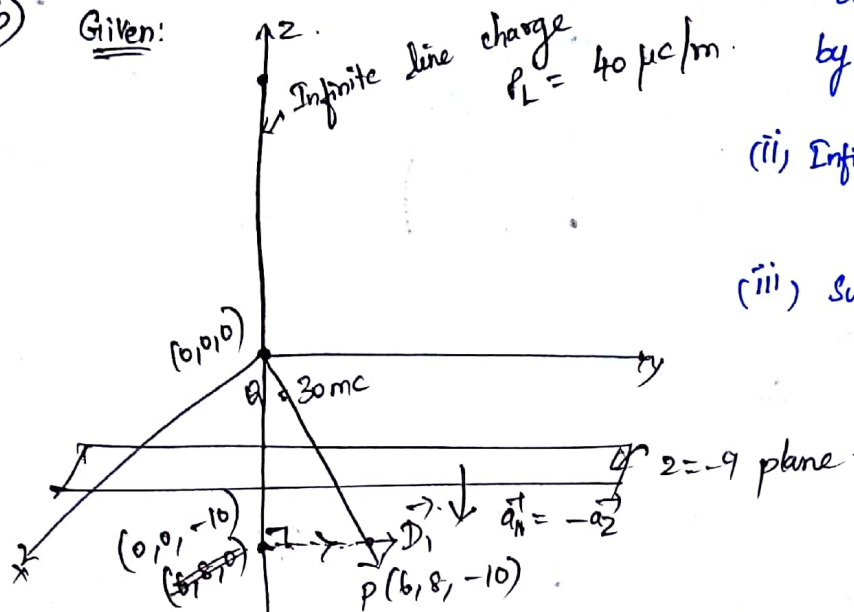 Given:
z
Infinite line charge
ρL = 40 μc/m.
by
(ii) Infi
(iii) Su
(0,0,0)
y
Q = 30mc
z=-9 plane
aN = -az
(0,0,-10)
(6,8,0)
D1
P(6,8,-10)
x